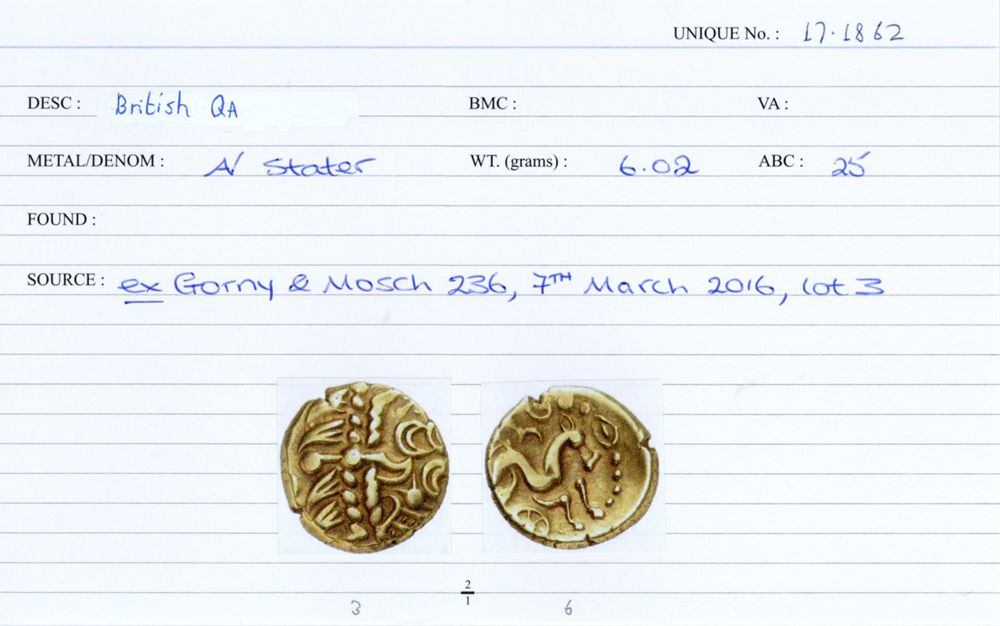 UNIQUE No. : 17.1862
DESC : British QA BMC : VA :
METAL/DENOM : A/ Stater WT. (grams) : 6.02 ABC : 25
FOUND :
SOURCE : ex Gorny & Mosch 236, 7TH March 2016, lot 3
2
1
3 6